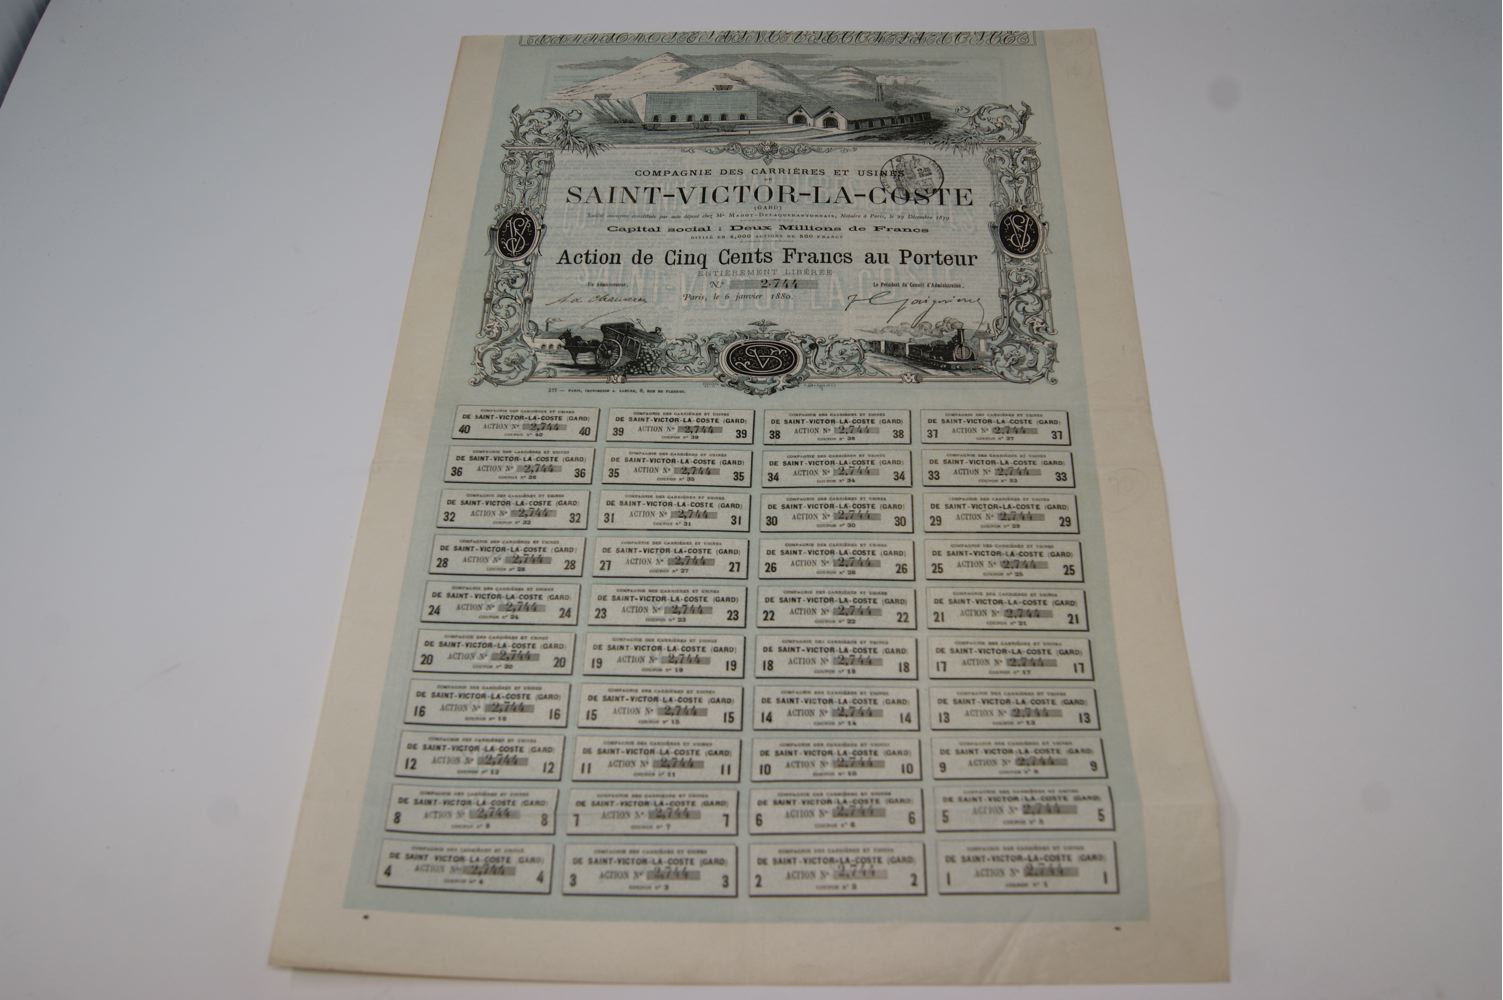 COMPAGNIE DES CARRIÈRES ET USINES
DE
SAINT-VICTOR-LA-COSTE
(GARD)
Société anonyme constituée par acte déposé chez Me Magot-Delaquerantonnais, Notaire à Paris, le 29 Décembre 1879
Capital social : Deux Millions de Francs
DIVISÉ EN 4,000 ACTIONS DE 500 FRANCS
Action de Cinq Cents Francs au Porteur
ENTIÈREMENT LIBÉRÉE
No 2,744
Un Administrateur, Le Président du Conseil d'Administration,
Paris, le 6 janvier 1880.
COMPAGNIE DES CARRIÈRES ET USINES COMPAGNIE DES CARRIÈRES ET USINES COMPAGNIE DES CARRIÈRES ET USINES COMPAGNIE DES CARRIÈRES ET USINES
DE SAINT-VICTOR-LA-COSTE (GARD) DE SAINT-VICTOR-LA-COSTE (GARD) DE SAINT-VICTOR-LA-COSTE (GARD) DE SAINT-VICTOR-LA-COSTE (GARD)
40 ACTION No 2,744 40 39 ACTION No 2,744 39 38 ACTION No 2,744 38 37 ACTION No 2,744 37
COUPON No 40 COUPON No 39 COUPON No 38 COUPON No 37
COMPAGNIE DES CARRIÈRES ET USINES COMPAGNIE DES CARRIÈRES ET USINES COMPAGNIE DES CARRIÈRES ET USINES COMPAGNIE DES CARRIÈRES ET USINES
DE SAINT-VICTOR-LA-COSTE (GARD) DE SAINT-VICTOR-LA-COSTE (GARD) DE SAINT-VICTOR-LA-COSTE (GARD) DE SAINT-VICTOR-LA-COSTE (GARD)
36 ACTION No 2,744 36 35 ACTION No 2,744 35 34 ACTION No 2,744 34 33 ACTION No 2,744 33
COUPON No 36 COUPON No 35 COUPON No 34 COUPON No 33
COMPAGNIE DES CARRIÈRES ET USINES COMPAGNIE DES CARRIÈRES ET USINES COMPAGNIE DES CARRIÈRES ET USINES COMPAGNIE DES CARRIÈRES ET USINES
DE SAINT-VICTOR-LA-COSTE (GARD) DE SAINT-VICTOR-LA-COSTE (GARD) DE SAINT-VICTOR-LA-COSTE (GARD) DE SAINT-VICTOR-LA-COSTE (GARD)
32 ACTION No 2,744 32 31 ACTION No 2,744 31 30 ACTION No 2,744 30 29 ACTION No 2,744 29
COUPON No 32 COUPON No 31 COUPON No 30 COUPON No 29
COMPAGNIE DES CARRIÈRES ET USINES COMPAGNIE DES CARRIÈRES ET USINES COMPAGNIE DES CARRIÈRES ET USINES COMPAGNIE DES CARRIÈRES ET USINES
DE SAINT-VICTOR-LA-COSTE (GARD) DE SAINT-VICTOR-LA-COSTE (GARD) DE SAINT-VICTOR-LA-COSTE (GARD) DE SAINT-VICTOR-LA-COSTE (GARD)
28 ACTION No 2,744 28 27 ACTION No 2,744 27 26 ACTION No 2,744 26 25 ACTION No 2,744 25
COUPON No 28 COUPON No 27 COUPON No 26 COUPON No 25
COMPAGNIE DES CARRIÈRES ET USINES COMPAGNIE DES CARRIÈRES ET USINES COMPAGNIE DES CARRIÈRES ET USINES COMPAGNIE DES CARRIÈRES ET USINES
DE SAINT-VICTOR-LA-COSTE (GARD) DE SAINT-VICTOR-LA-COSTE (GARD) DE SAINT-VICTOR-LA-COSTE (GARD) DE SAINT-VICTOR-LA-COSTE (GARD)
24 ACTION No 2,744 24 23 ACTION No 2,744 23 22 ACTION No 2,744 22 21 ACTION No 2,744 21
COUPON No 24 COUPON No 23 COUPON No 22 COUPON No 21
COMPAGNIE DES CARRIÈRES ET USINES COMPAGNIE DES CARRIÈRES ET USINES COMPAGNIE DES CARRIÈRES ET USINES COMPAGNIE DES CARRIÈRES ET USINES
DE SAINT-VICTOR-LA-COSTE (GARD) DE SAINT-VICTOR-LA-COSTE (GARD) DE SAINT-VICTOR-LA-COSTE (GARD) DE SAINT-VICTOR-LA-COSTE (GARD)
20 ACTION No 2,744 20 19 ACTION No 2,744 19 18 ACTION No 2,744 18 17 ACTION No 2,744 17
COUPON No 20 COUPON No 19 COUPON No 18 COUPON No 17
COMPAGNIE DES CARRIÈRES ET USINES COMPAGNIE DES CARRIÈRES ET USINES COMPAGNIE DES CARRIÈRES ET USINES COMPAGNIE DES CARRIÈRES ET USINES
DE SAINT-VICTOR-LA-COSTE (GARD) DE SAINT-VICTOR-LA-COSTE (GARD) DE SAINT-VICTOR-LA-COSTE (GARD) DE SAINT-VICTOR-LA-COSTE (GARD)
16 ACTION No 2,744 16 15 ACTION No 2,744 15 14 ACTION No 2,744 14 13 ACTION No 2,744 13
COUPON No 16 COUPON No 15 COUPON No 14 COUPON No 13
COMPAGNIE DES CARRIÈRES ET USINES COMPAGNIE DES CARRIÈRES ET USINES COMPAGNIE DES CARRIÈRES ET USINES COMPAGNIE DES CARRIÈRES ET USINES
DE SAINT-VICTOR-LA-COSTE (GARD) DE SAINT-VICTOR-LA-COSTE (GARD) DE SAINT-VICTOR-LA-COSTE (GARD) DE SAINT-VICTOR-LA-COSTE (GARD)
12 ACTION No 2,744 12 11 ACTION No 2,744 11 10 ACTION No 2,744 10 9 ACTION No 2,744 9
COUPON No 12 COUPON No 11 COUPON No 10 COUPON No 9
COMPAGNIE DES CARRIÈRES ET USINES COMPAGNIE DES CARRIÈRES ET USINES COMPAGNIE DES CARRIÈRES ET USINES COMPAGNIE DES CARRIÈRES ET USINES
DE SAINT-VICTOR-LA-COSTE (GARD) DE SAINT-VICTOR-LA-COSTE (GARD) DE SAINT-VICTOR-LA-COSTE (GARD) DE SAINT-VICTOR-LA-COSTE (GARD)
8 ACTION No 2,744 8 7 ACTION No 2,744 7 6 ACTION No 2,744 6 5 ACTION No 2,744 5
COUPON No 8 COUPON No 7 COUPON No 6 COUPON No 5
COMPAGNIE DES CARRIÈRES ET USINES COMPAGNIE DES CARRIÈRES ET USINES COMPAGNIE DES CARRIÈRES ET USINES COMPAGNIE DES CARRIÈRES ET USINES
DE SAINT-VICTOR-LA-COSTE (GARD) DE SAINT-VICTOR-LA-COSTE (GARD) DE SAINT-VICTOR-LA-COSTE (GARD) DE SAINT-VICTOR-LA-COSTE (GARD)
4 ACTION No 2,744 4 3 ACTION No 2,744 3 2 ACTION No 2,744 2 1 ACTION No 2,744 1
COUPON No 4 COUPON No 3 COUPON No 2 COUPON No 1